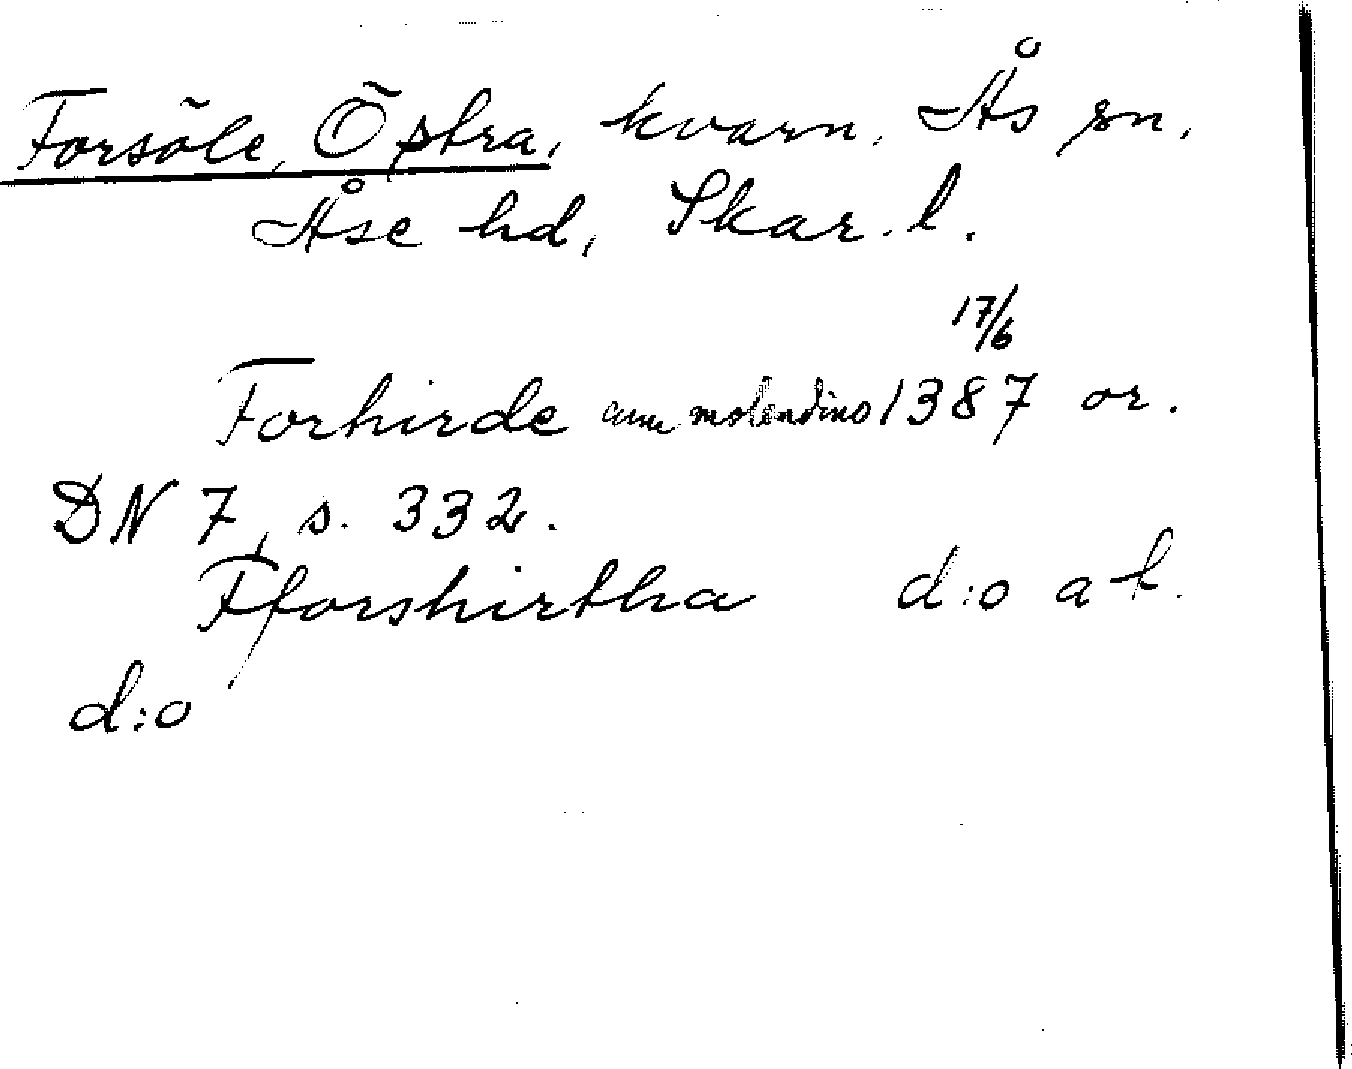 Forsöle, Östra, kvarn, Ås sn,
Åse hd, Skar. l.
17/6
Forhirde cum molendino 1387 or.
DN 7, s. 332.
Fforshirtha d:o at.
d:o